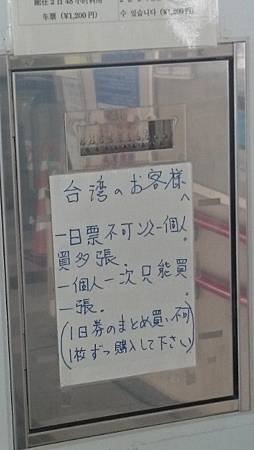 车票 (¥1,200円)
수 있습니다 (¥1,200円)
台湾のお客様へ
一日票不可以一個人
買多張.
一個人一次只能買
一張.
(1日券のまとめ買い不可
1枚ずつ購入して下さい)